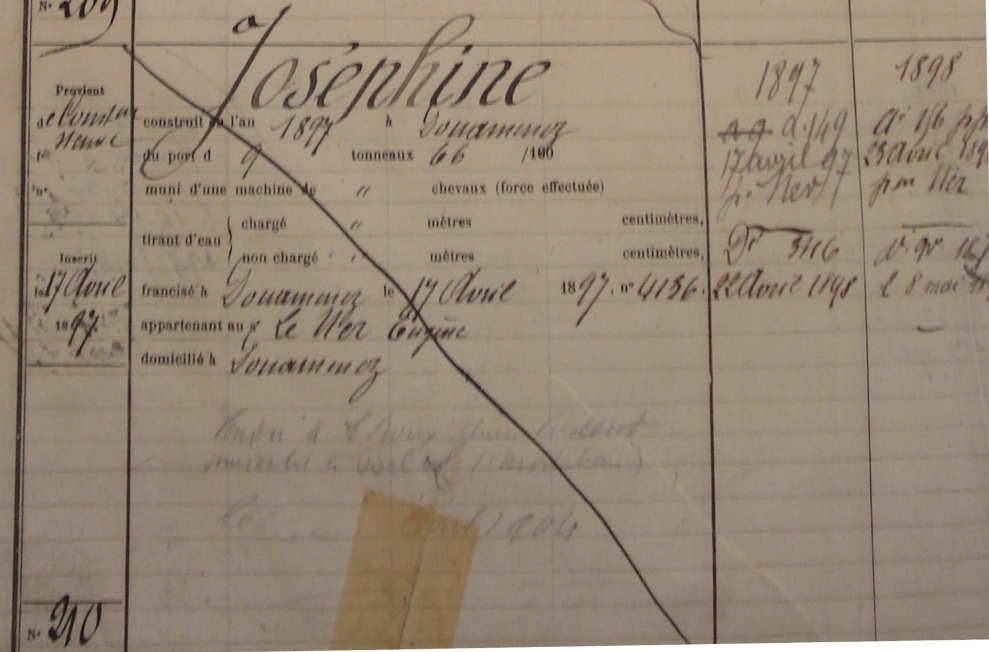 N° 209
Joséphine
1897
1898
Provient
de Constron
neuve
construit en l'an 1897 à Douarnenez
du port d 9 tonneaux 66 /100
muni d'une machine de " chevaux (force effectuée)
tirant d'eau { chargé " mètres centimètres,
non chargé " mètres centimètres,
Inscrit
le 17 Avril
1897.
francisé à Douarnenez le 17 Avril 1897. n° 4136.
appartenant au sr Le Ner Eugène
domicilié à Douarnenez
a. 149
17 avril 97
p. Ner
Dt 346
22 Avril 1898
at 156
23 Avril 189
pon Ner
le 8 mai
Vendu à
domicilié à Belz (Morbihan)
le
N° 210